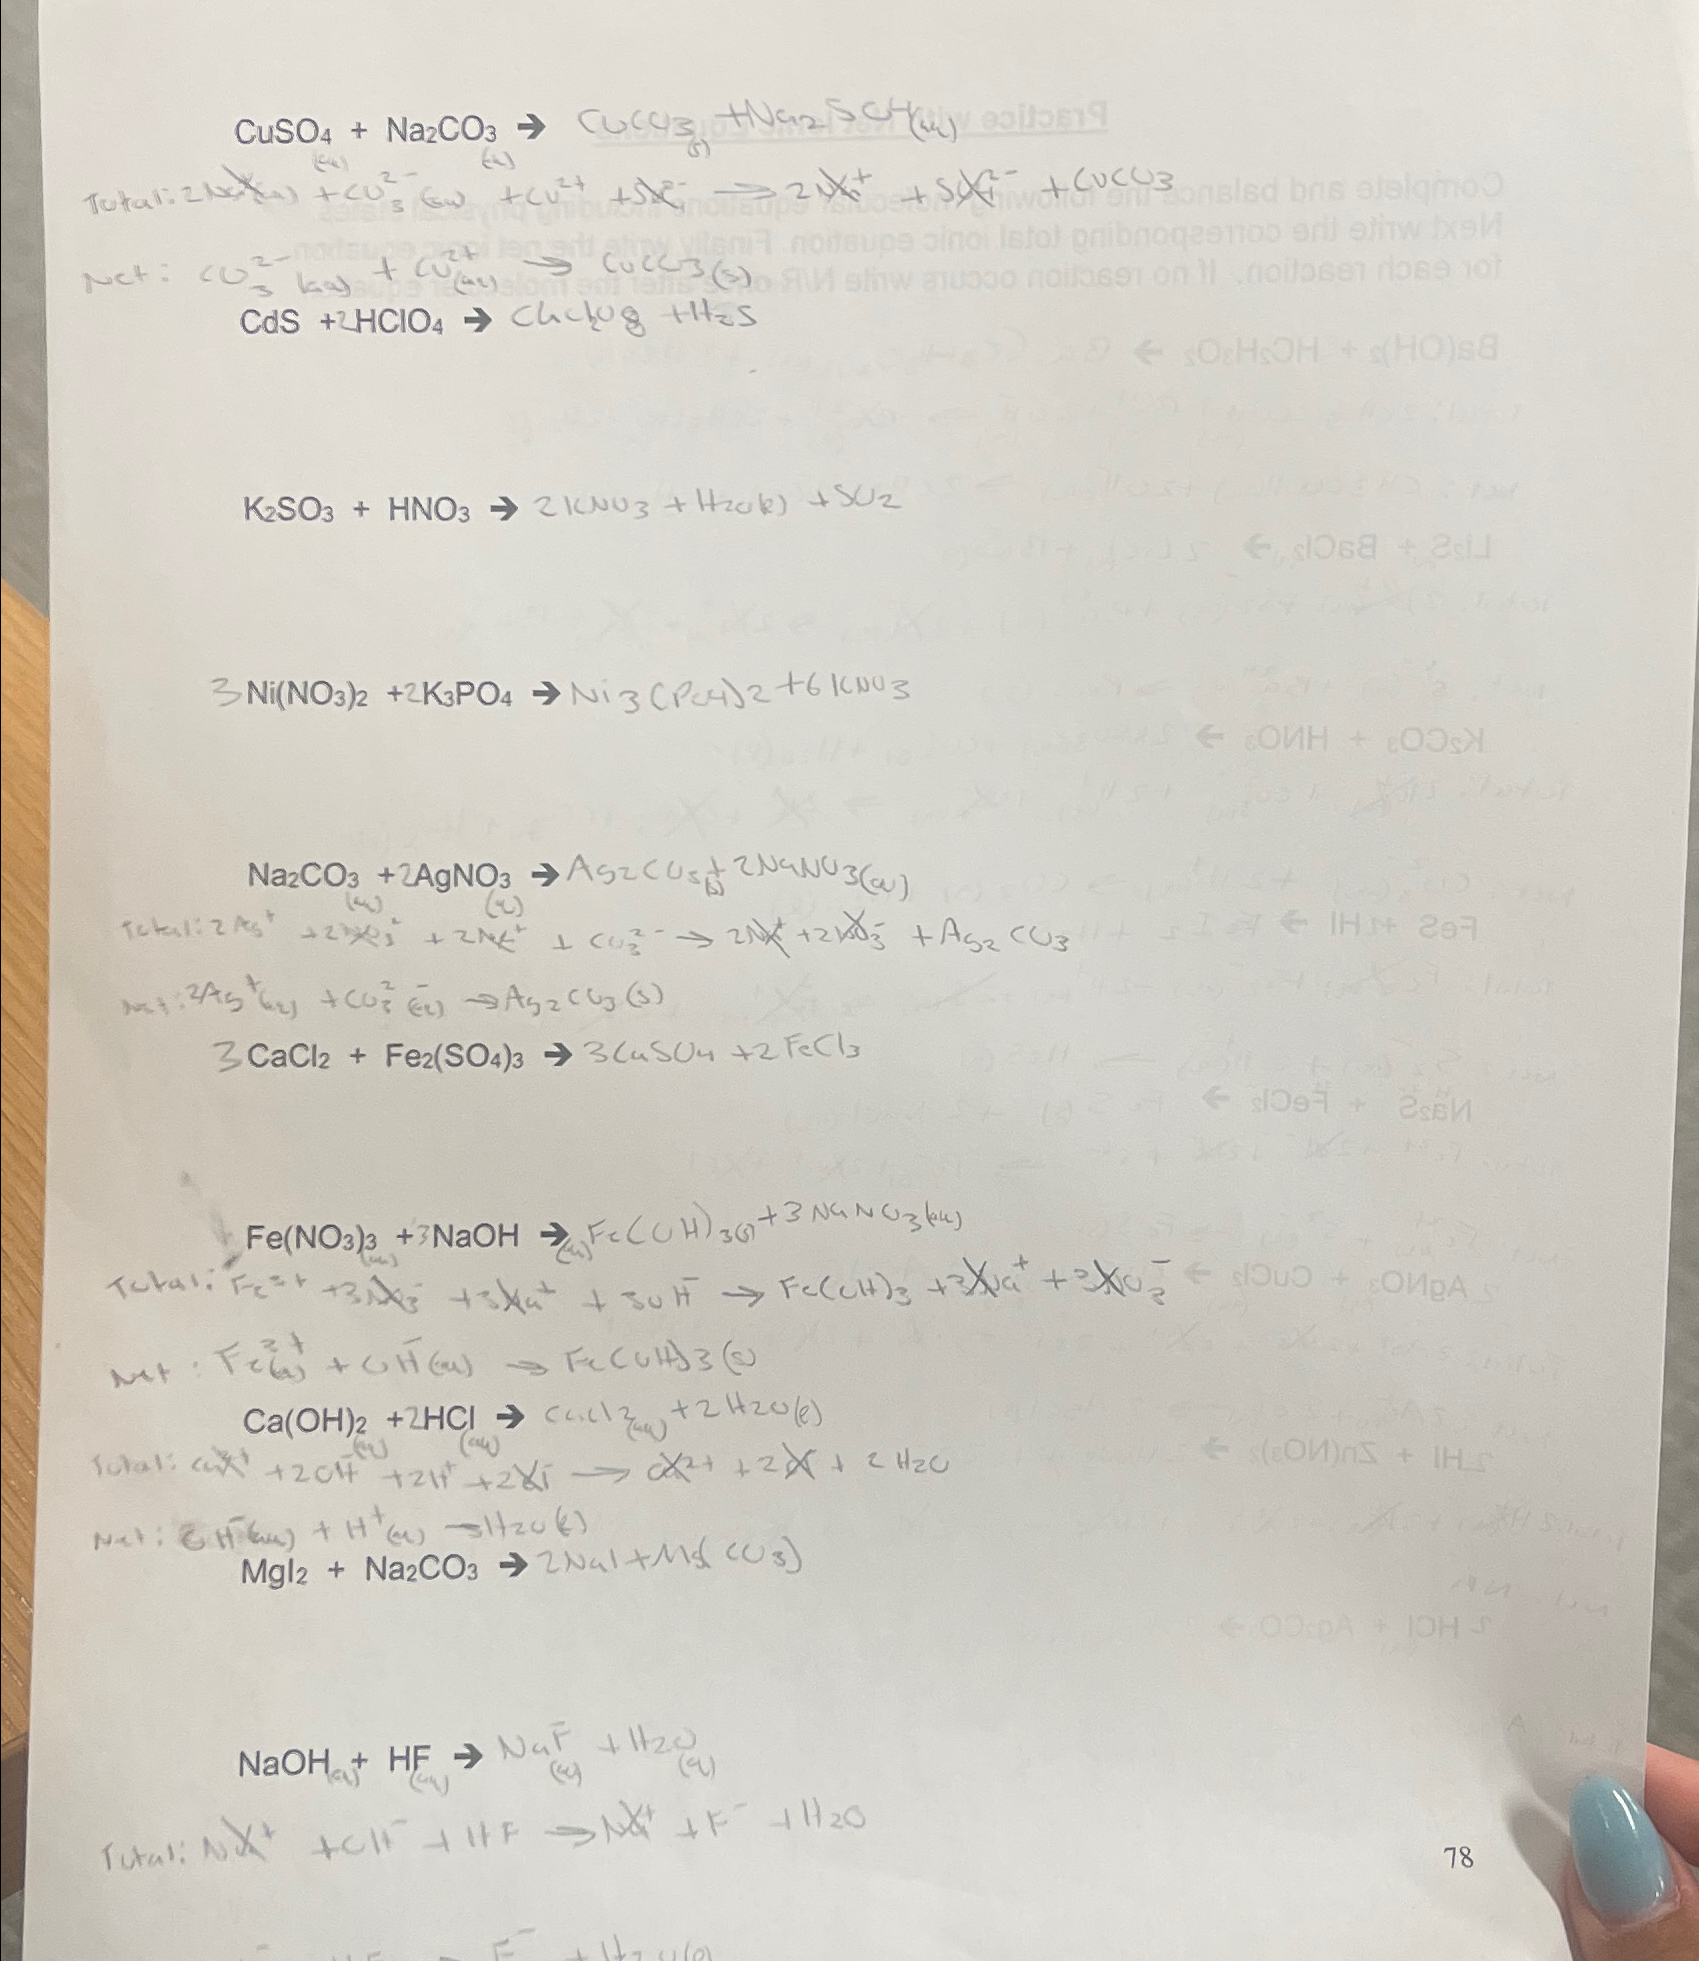 CuSO4 (aq) + Na2CO3 (aq) → CuCO3 (s) + Na2SO4 (aq)
Total: 2Na+(aq) + CO3 2- (aq) + Cu2+ + SO4 2- → 2Na+ + SO4 2- + CuCO3
Net: CO3 2- (aq) + Cu2+ (aq) → CuCO3(s)
CdS + 2HClO4 → + H2S
K2SO3 + HNO3 → 2KNO3 + H2O(l) + SO2
3 Ni(NO3)2 + 2K3PO4 → Ni3(PO4)2 + 6KNO3
Na2CO3 (aq) + 2AgNO3 (aq) → Ag2CO3 (s) + 2NaNO3(aq)
Total: 2Ag+ + 2NO3 + 2Na+ + CO3 2- → 2Na+ + 2NO3- + Ag2CO3
Net: 2Ag+(aq) + CO3 2- (aq) → Ag2CO3(s)
3 CaCl2 + Fe2(SO4)3 → 3CaSO4 + 2FeCl3
Fe(NO3)3 (aq) + 3NaOH (aq) → Fe(OH)3(s) + 3NaNO3(aq)
Total: Fe3+ + 3NO3- + 3Na+ + 3OH- → Fe(OH)3 + 3Na+ + 3NO3-
Net: Fe3+(aq) + OH-(aq) → Fe(OH)3(s)
Ca(OH)2 (aq) + 2HCl (aq) → CaCl2(aq) + 2H2O(l)
Total: Ca2+ + 2OH- + 2H+ + 2Cl- → Ca2+ + 2Cl- + 2H2O
Net: OH-(aq) + H+(aq) → H2O(l)
MgI2 + Na2CO3 → 2NaI + Mg(CO3)
NaOH(aq) + HF(aq) → NaF(aq) + H2O(aq)
Total: Na+ + OH- + HF → Na+ + F- + H2O
78
F- + H2O(l)